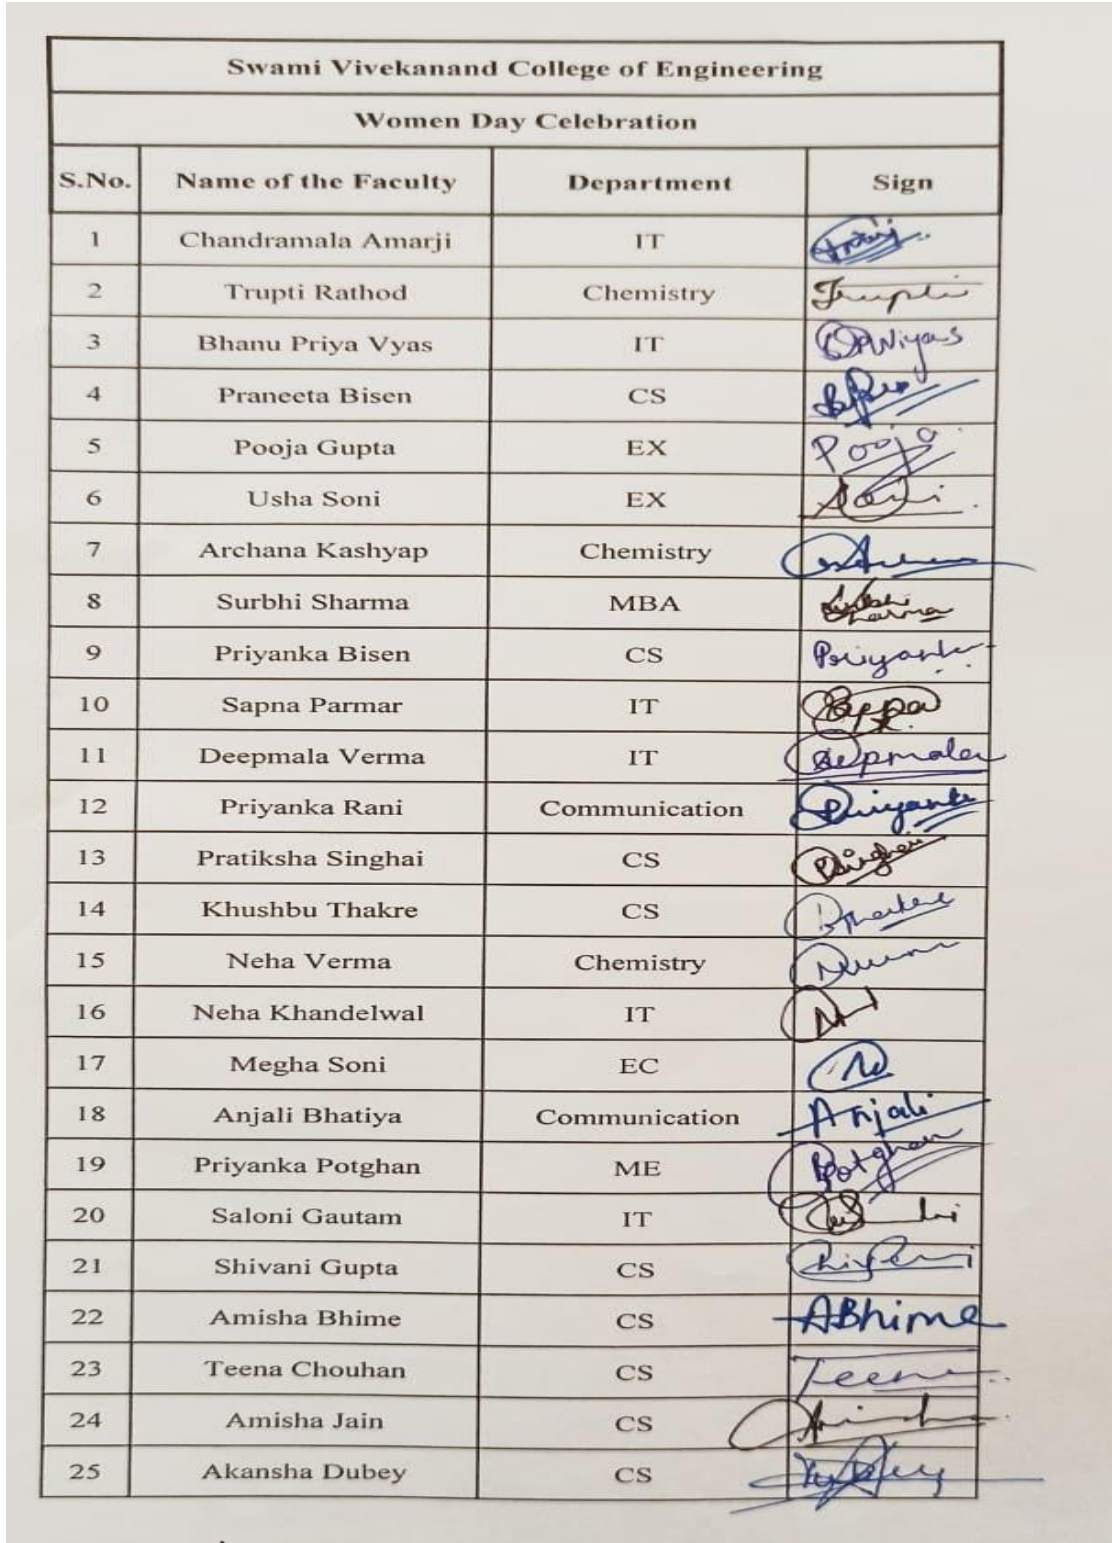 Swami Vivekanand College of Engineering
Women Day Celebration
S.No. Name of the Faculty Department Sign
1 Chandramala Amarji IT
2 Trupti Rathod Chemistry Trupti
3 Bhanu Priya Vyas IT
4 Praneeta Bisen CS
5 Pooja Gupta EX Pooja
6 Usha Soni EX Soni
7 Archana Kashyap Chemistry
8 Surbhi Sharma MBA Surbhi Sharma
9 Priyanka Bisen CS Priyanka
10 Sapna Parmar IT
11 Deepmala Verma IT Deepmala
12 Priyanka Rani Communication Priyanka
13 Pratiksha Singhai CS
14 Khushbu Thakre CS
15 Neha Verma Chemistry
16 Neha Khandelwal IT
17 Megha Soni EC
18 Anjali Bhatiya Communication Anjali
19 Priyanka Potghan ME Potghan
20 Saloni Gautam IT
21 Shivani Gupta CS
22 Amisha Bhime CS ABhime
23 Teena Chouhan CS Teena
24 Amisha Jain CS
25 Akansha Dubey CS